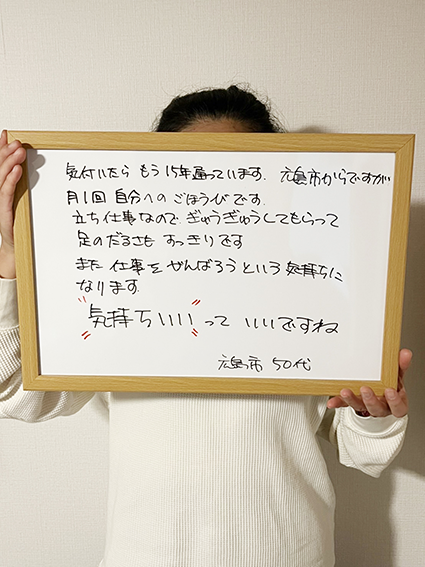 気付いたら もう15年通っています。 広島市からですが
月1回 自分への ごほうびです。
立ち仕事なので ぎゅうぎゅうしてもらって
足のだるさも すっきりです
また 仕事を がんばろうという 気持ちに
なります。
"気持ちいい!"って いいですね
広島市 50代